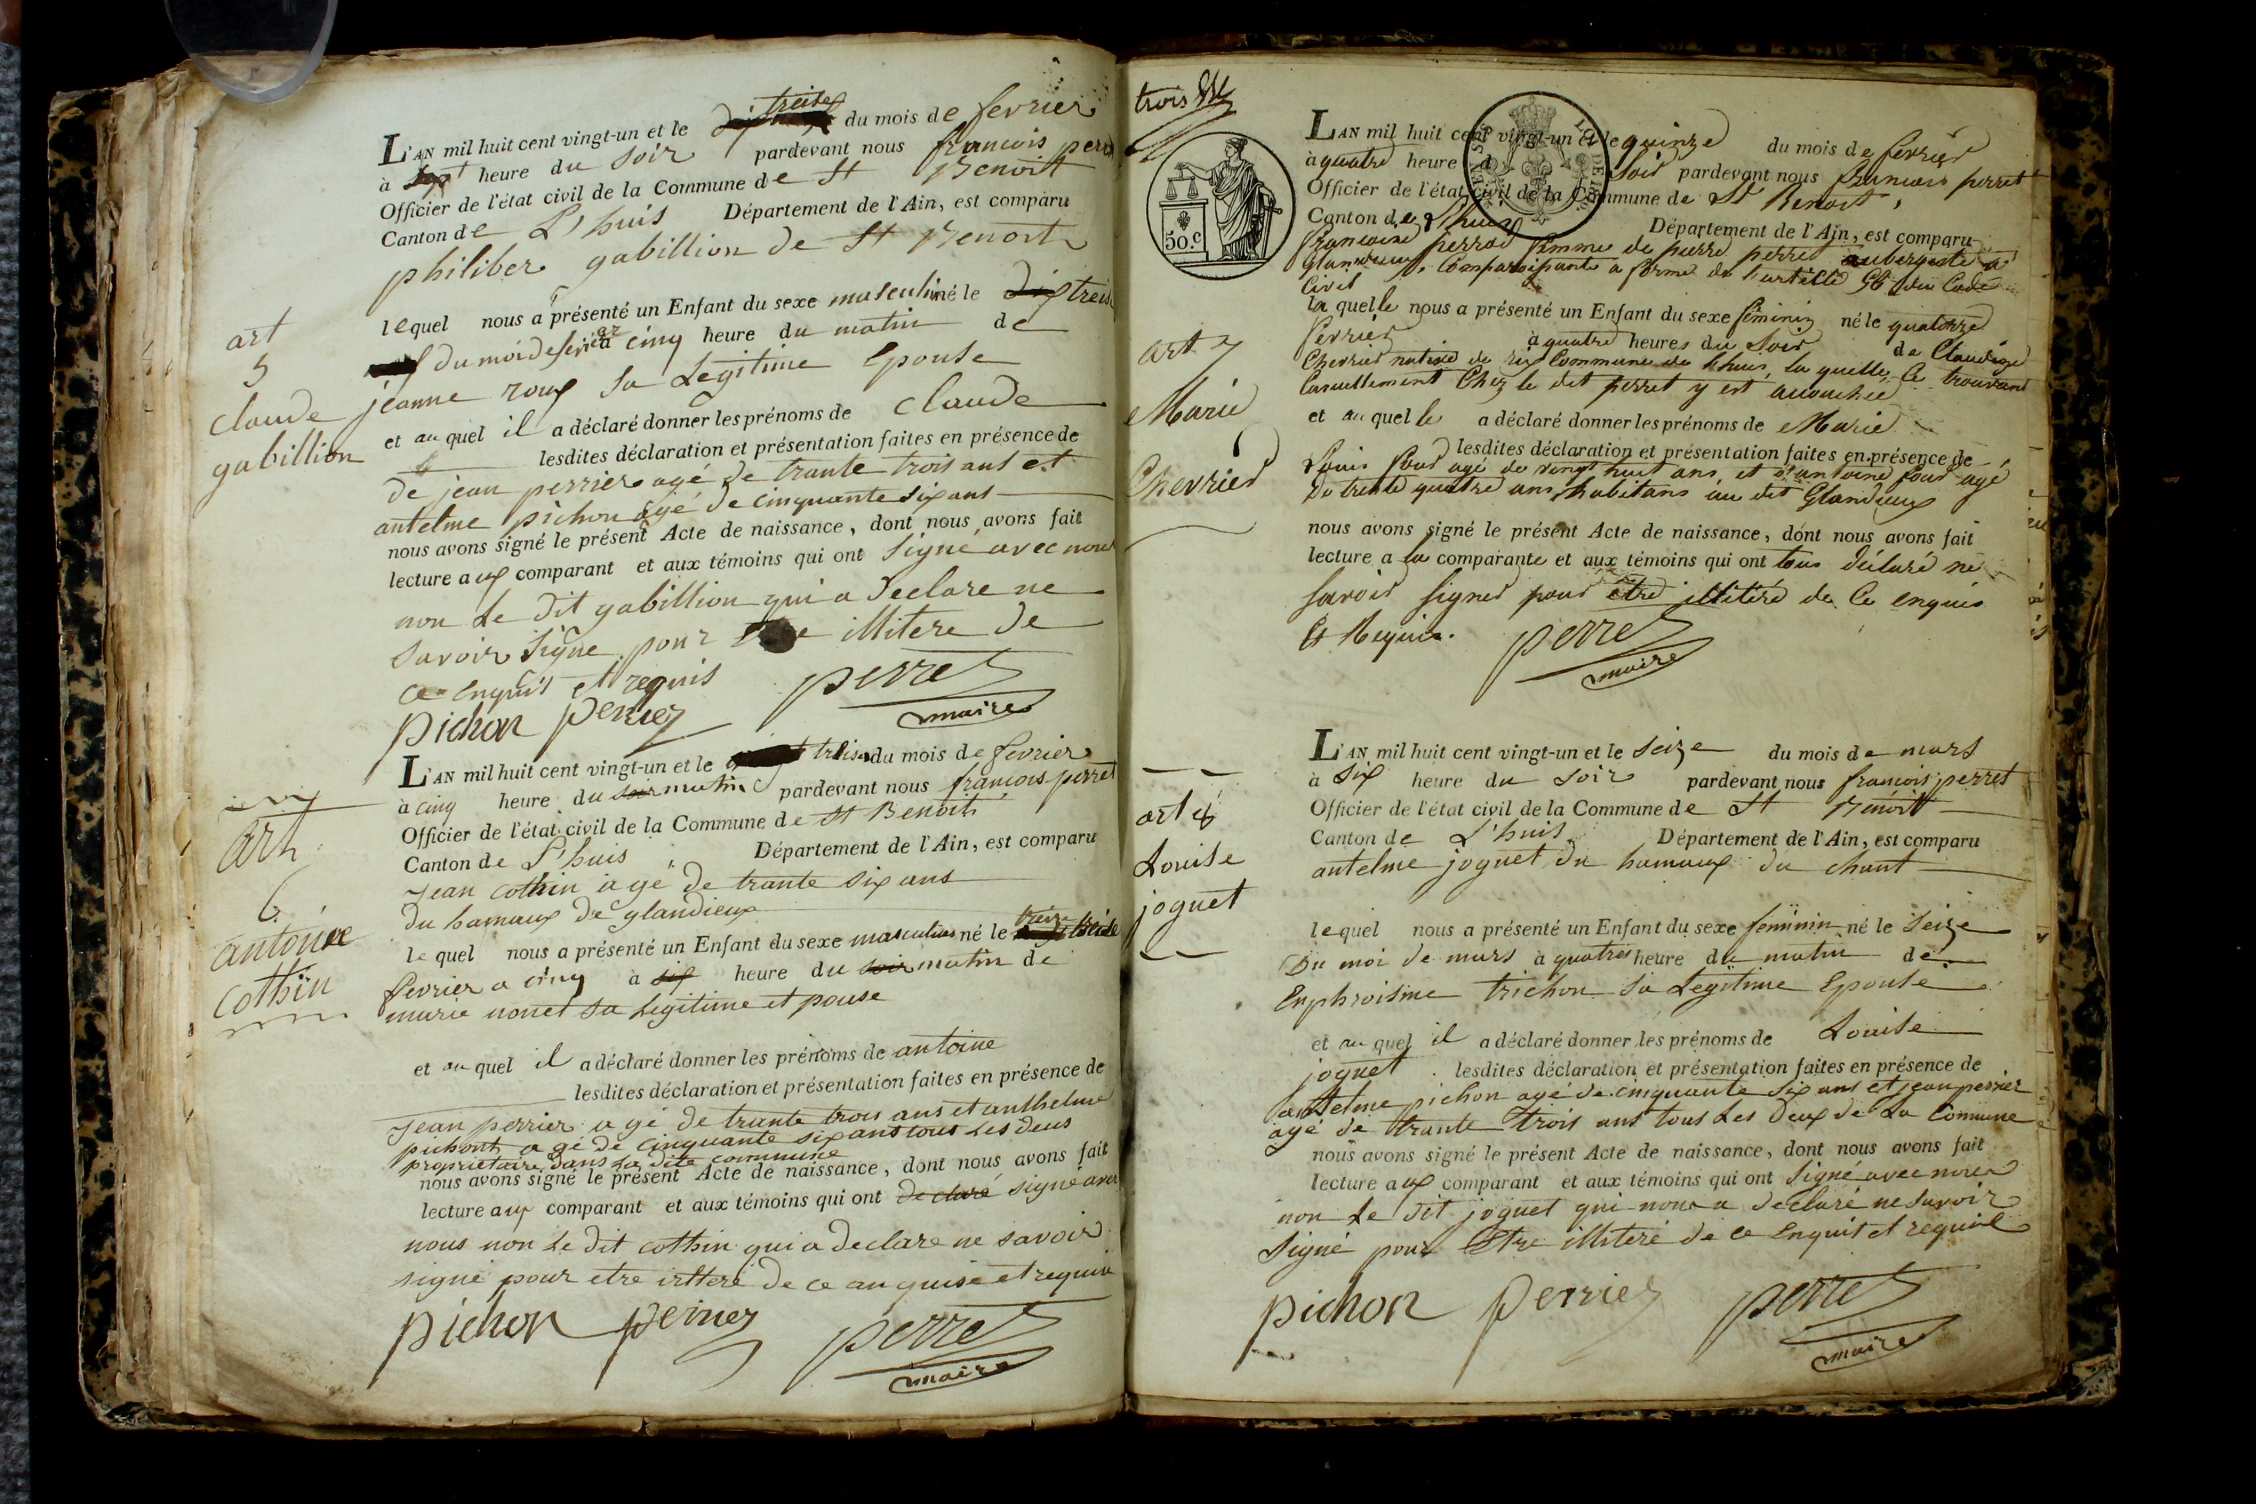 L'AN mil huit cent vingt-un et le treise du mois de fevrier
à sept heure du soir pardevant nous francois perret
Officier de l'état civil de la Commune de St Benoit
Canton de L'huis Département de l'Ain, est comparu
philiber gabillion de St Benoit
lequel nous a présenté un Enfant du sexe masculin né le dix treise
du moi de fevrier a cinq heure du matin de
jeanne roux sa Legitime Epouse
et au quel il a déclaré donner les prénoms de claude
lesdites déclaration et présentation faites en présence de
de jean perrier agé de trante trois ans et
antelme pichon agé de cinquante six ans
nous avons signé le présent Acte de naissance, dont nous avons fait
lecture aux comparant et aux témoins qui ont signé avec nous
non Le Dit gabillion qui a Declare ne
savoir signe pour illitere De
ce enquis et requis
pichon perrier perret
maire
art
5
claude
gabillion
L'AN mil huit cent vingt-un et le treise du mois de fevrier
à cinq heure du soir matin pardevant nous francois perret
Officier de l'état civil de la Commune de St Benoit
Canton de L'huis Département de l'Ain, est comparu
Jean cothin a gé de trante six ans
Du hamaux De glandieux
le quel nous a présenté un Enfant du sexe masculin né le treize
fevrier a cinq à six heure du soir matin de
marie nonet sa Legitime et pouse
et au quel il a déclaré donner les prénoms de antoine
lesdites déclaration et présentation faites en présence de
Jean perrier a gé de trante trois ans et anthelme
pichont a gé de cinquante six ans tous Les deus
proprietaire dans La dite commune
nous avons signé le présent Acte de naissance, dont nous avons fait
lecture aux comparant et aux témoins qui ont declaré signé avec
nous non Le dit cothin qui a declare ne savoir
signé pour etre de ce an quise et requise
pichon perrier perret
maire
art
6
antoine
cothin
trois
50.c
L'AN mil huit cent vingt-un et le quinze du mois de fevrier
à quatre heure du Soir pardevant nous francois perret
Officier de l'état civil de la Commune de St Benoit,
Canton de Lhuis Département de l'Ain, est comparu
Francoise perrod femme de pierre perret aubergiste a
Glandieux, Comparoissante a forme de l'article 56 du Code
Civil
la quelle nous a présenté un Enfant du sexe féminin né le quatorze
fevrier à quatre heures du Soir de Claudine
Chevrier native de rix Commune de Lhuis, la quelle Ce trouvant
Casuellement Chez le dit perret y est accouchée
et au quel le a déclaré donner les prénoms de Marie
lesdites déclaration et présentation faites en présence de
Louis four agé de vingt huit ans, et d'antoine four agé
De trente quatre ans, habitans au dit Glandieux
nous avons signé le présent Acte de naissance, dont nous avons fait
lecture a la comparante et aux témoins qui ont tous déclaré ne
savoir signer pour être illitéré de Ce enquis
Et Requis. perret
maire
art 7
Marie
Chevrier
L'AN mil huit cent vingt-un et le seize du mois de mars
à six heure du soir pardevant nous francois perret
Officier de l'état civil de la Commune de St Benoit
Canton de L'huis Département de l'Ain, est comparu
antelme joguet du hamaux du chant
lequel nous a présenté un Enfant du sexe feminin né le seize
Du moi de mars à quatres heure du matin de
Enphroisine trichon sa Legitime Epouse
et au quel il a déclaré donner les prénoms de Louise
joguet lesdites déclaration et présentation faites en présence de
antelme pichon agé de cinquante six ans et jean perrier
agé de trante trois ans tous Les deux de La Commune
nous avons signé le présent Acte de naissance, dont nous avons fait
lecture aux comparant et aux témoins qui ont signé avec nous
non Le Dit joguet qui nous a declaré ne savoir
signé pour Etre illiteré de ce Enquit et requise
pichon perrier perret
maire
art 8
Louise
joguet